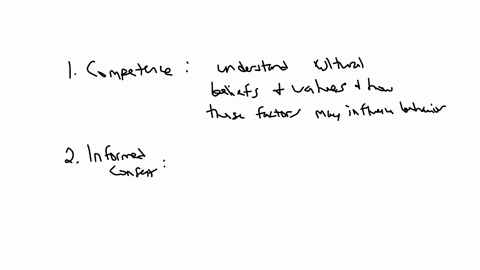 1. Competence : understand cultural
beliefs & values & how
these factors may influence behavior
2. Informed
Consent :